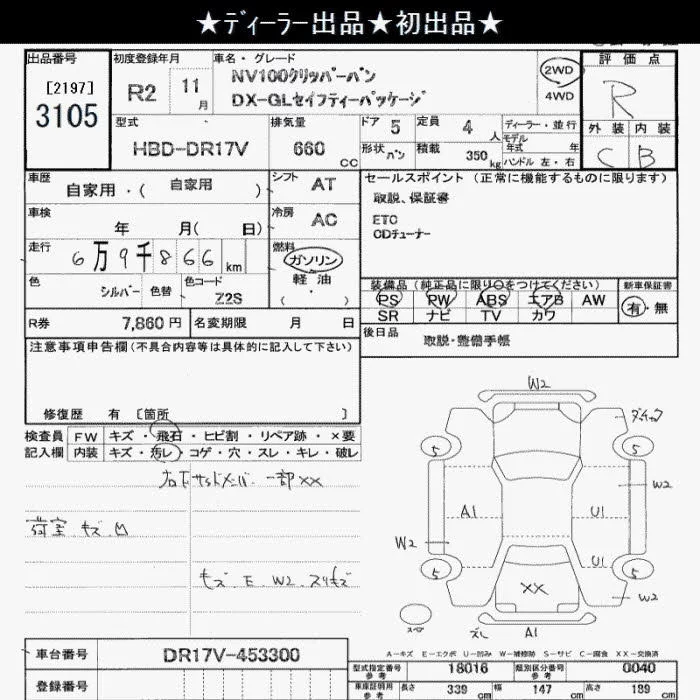 ★ディーラー出品★初出品★
出品番号
[2197]
3105
初度登録年月
R2
11
月
車名・グレード
NV100クリッパーバン
DX-GLセイフティーパッケージ
2WD
4WD
評価点
R
外装 内装
C B
型式
HBD-DR17V
排気量
660
CC
ドア 5 定員 4 人
形状 バン 積載 350 kg
ディーラー・並行
モデル
年式 年
ハンドル 左・右
車歴
自家用・( 自家用 )
シフト AT
車検
年 月( 日)
冷房 AC
走行
6万9千866
km
燃料
ガソリン
軽油
( )
色
シルバー 色替
色コード
Z2S
セールスポイント (正常に機能するものに限ります)
取説、保証書
ETC
CDチューナー
装備品(純正品に限り○をつけてください)
PS PW ABS エアB AW
SR ナビ TV カワ
新車保証書
有・無
R券 7,860円 名変期限 月 日
後日品 取説・整備手帳
注意事項申告欄(不具合内容等は具体的に記入して下さい)
修復歴 有 [箇所 ]
検査員 FW キズ・飛石・ヒビ割・リペア跡・×要
記入欄 内装 キズ・汚レ・コゲ・穴・スレ・キレ・破レ
右下サイドメンバー 一部XX
荷室 キズ 凹
キズ E W2 スリキズ
W2
5
5
W2
A1
U1
W2
U1
5
5
XX
W2
スペア
A1
A-キズ E-エクボ U-凹み W-補修跡 S-サビ C-腐食 XX-交換済
車台番号 DR17V-453300
登録番号
型式指定番号
参考
18016
類別区分番号
参考
0040
車庫証明用
参考
長さ 339 cm 幅 147 cm 高さ 189 cm